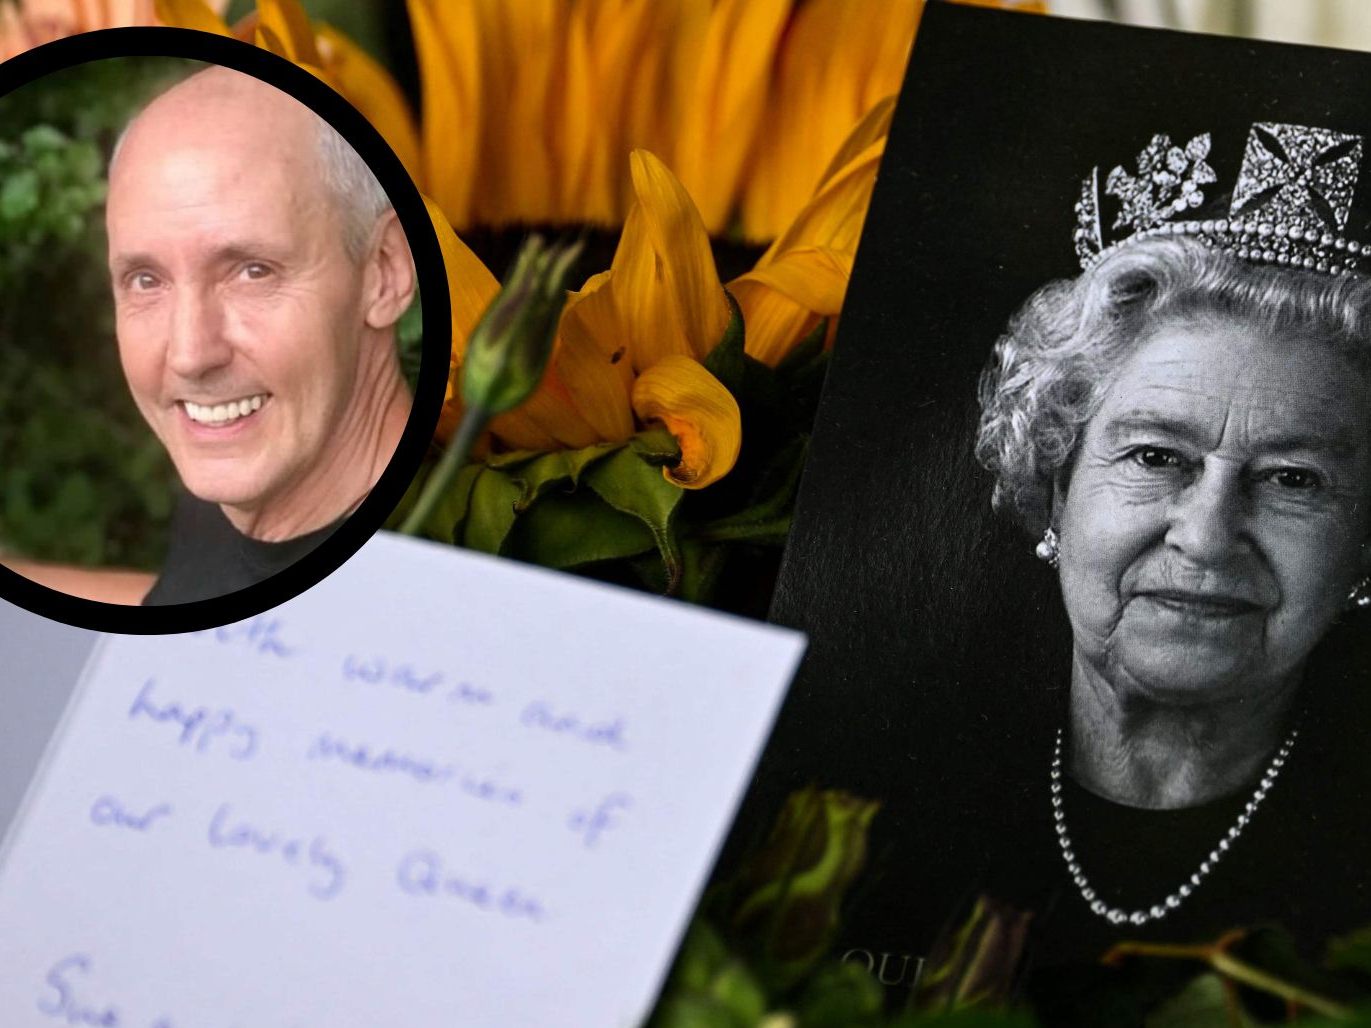 warm and
happy memories of
our lovely Queen
Sue
QU